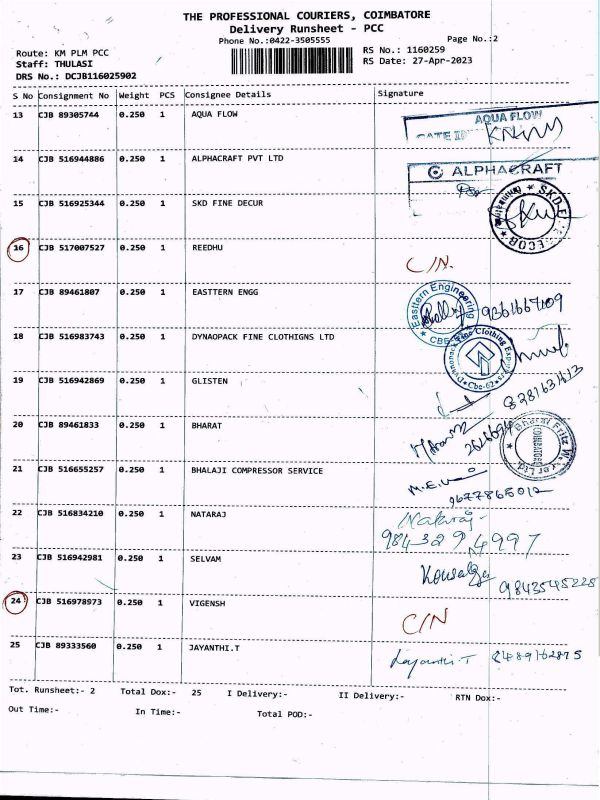 THE PROFESSIONAL COURIERS, COIMBATORE
Delivery Runsheet - PCC
Phone No.:0422-3505555 Page No.:2
Route: KM PLM PCC RS No.: 1160259
Staff: THULASI RS Date: 27-Apr-2023
DRS No.: DCJB116025902
S No Consignment No Weight PCS Consignee Details Signature
13 CJB 89305744 0.250 1 AQUA FLOW AQUA FLOW
14 CJB 516944886 0.250 1 ALPHACRAFT PVT LTD ALPHACRAFT
15 CJB 516925344 0.250 1 SKD FINE DECUR
16 CJB 517007527 0.250 1 REEDHU C/N.
17 CJB 89461807 0.250 1 EASTTERN ENGG Easttern Engineering CBE 9361667109
18 CJB 516983743 0.250 1 DYNAOPACK FINE CLOTHIGNS LTD
19 CJB 516942869 0.250 1 GLISTEN 8281631613
20 CJB 89461833 0.250 1 BHARAT
21 CJB 516655257 0.250 1 BHALAJI COMPRESSOR SERVICE
22 CJB 516834210 0.250 1 NATARAJ Nataraj
9843294997
23 CJB 516942981 0.250 1 SELVAM 9843545228
24 CJB 516978973 0.250 1 VIGENSH C/N
25 CJB 89333560 0.250 1 JAYANTHI.T Jayanthi.T
Tot. Runsheet:- 2 Total Dox:- 25 I Delivery:- II Delivery:- RTN Dox:-
Out Time:- In Time:- Total POD:-